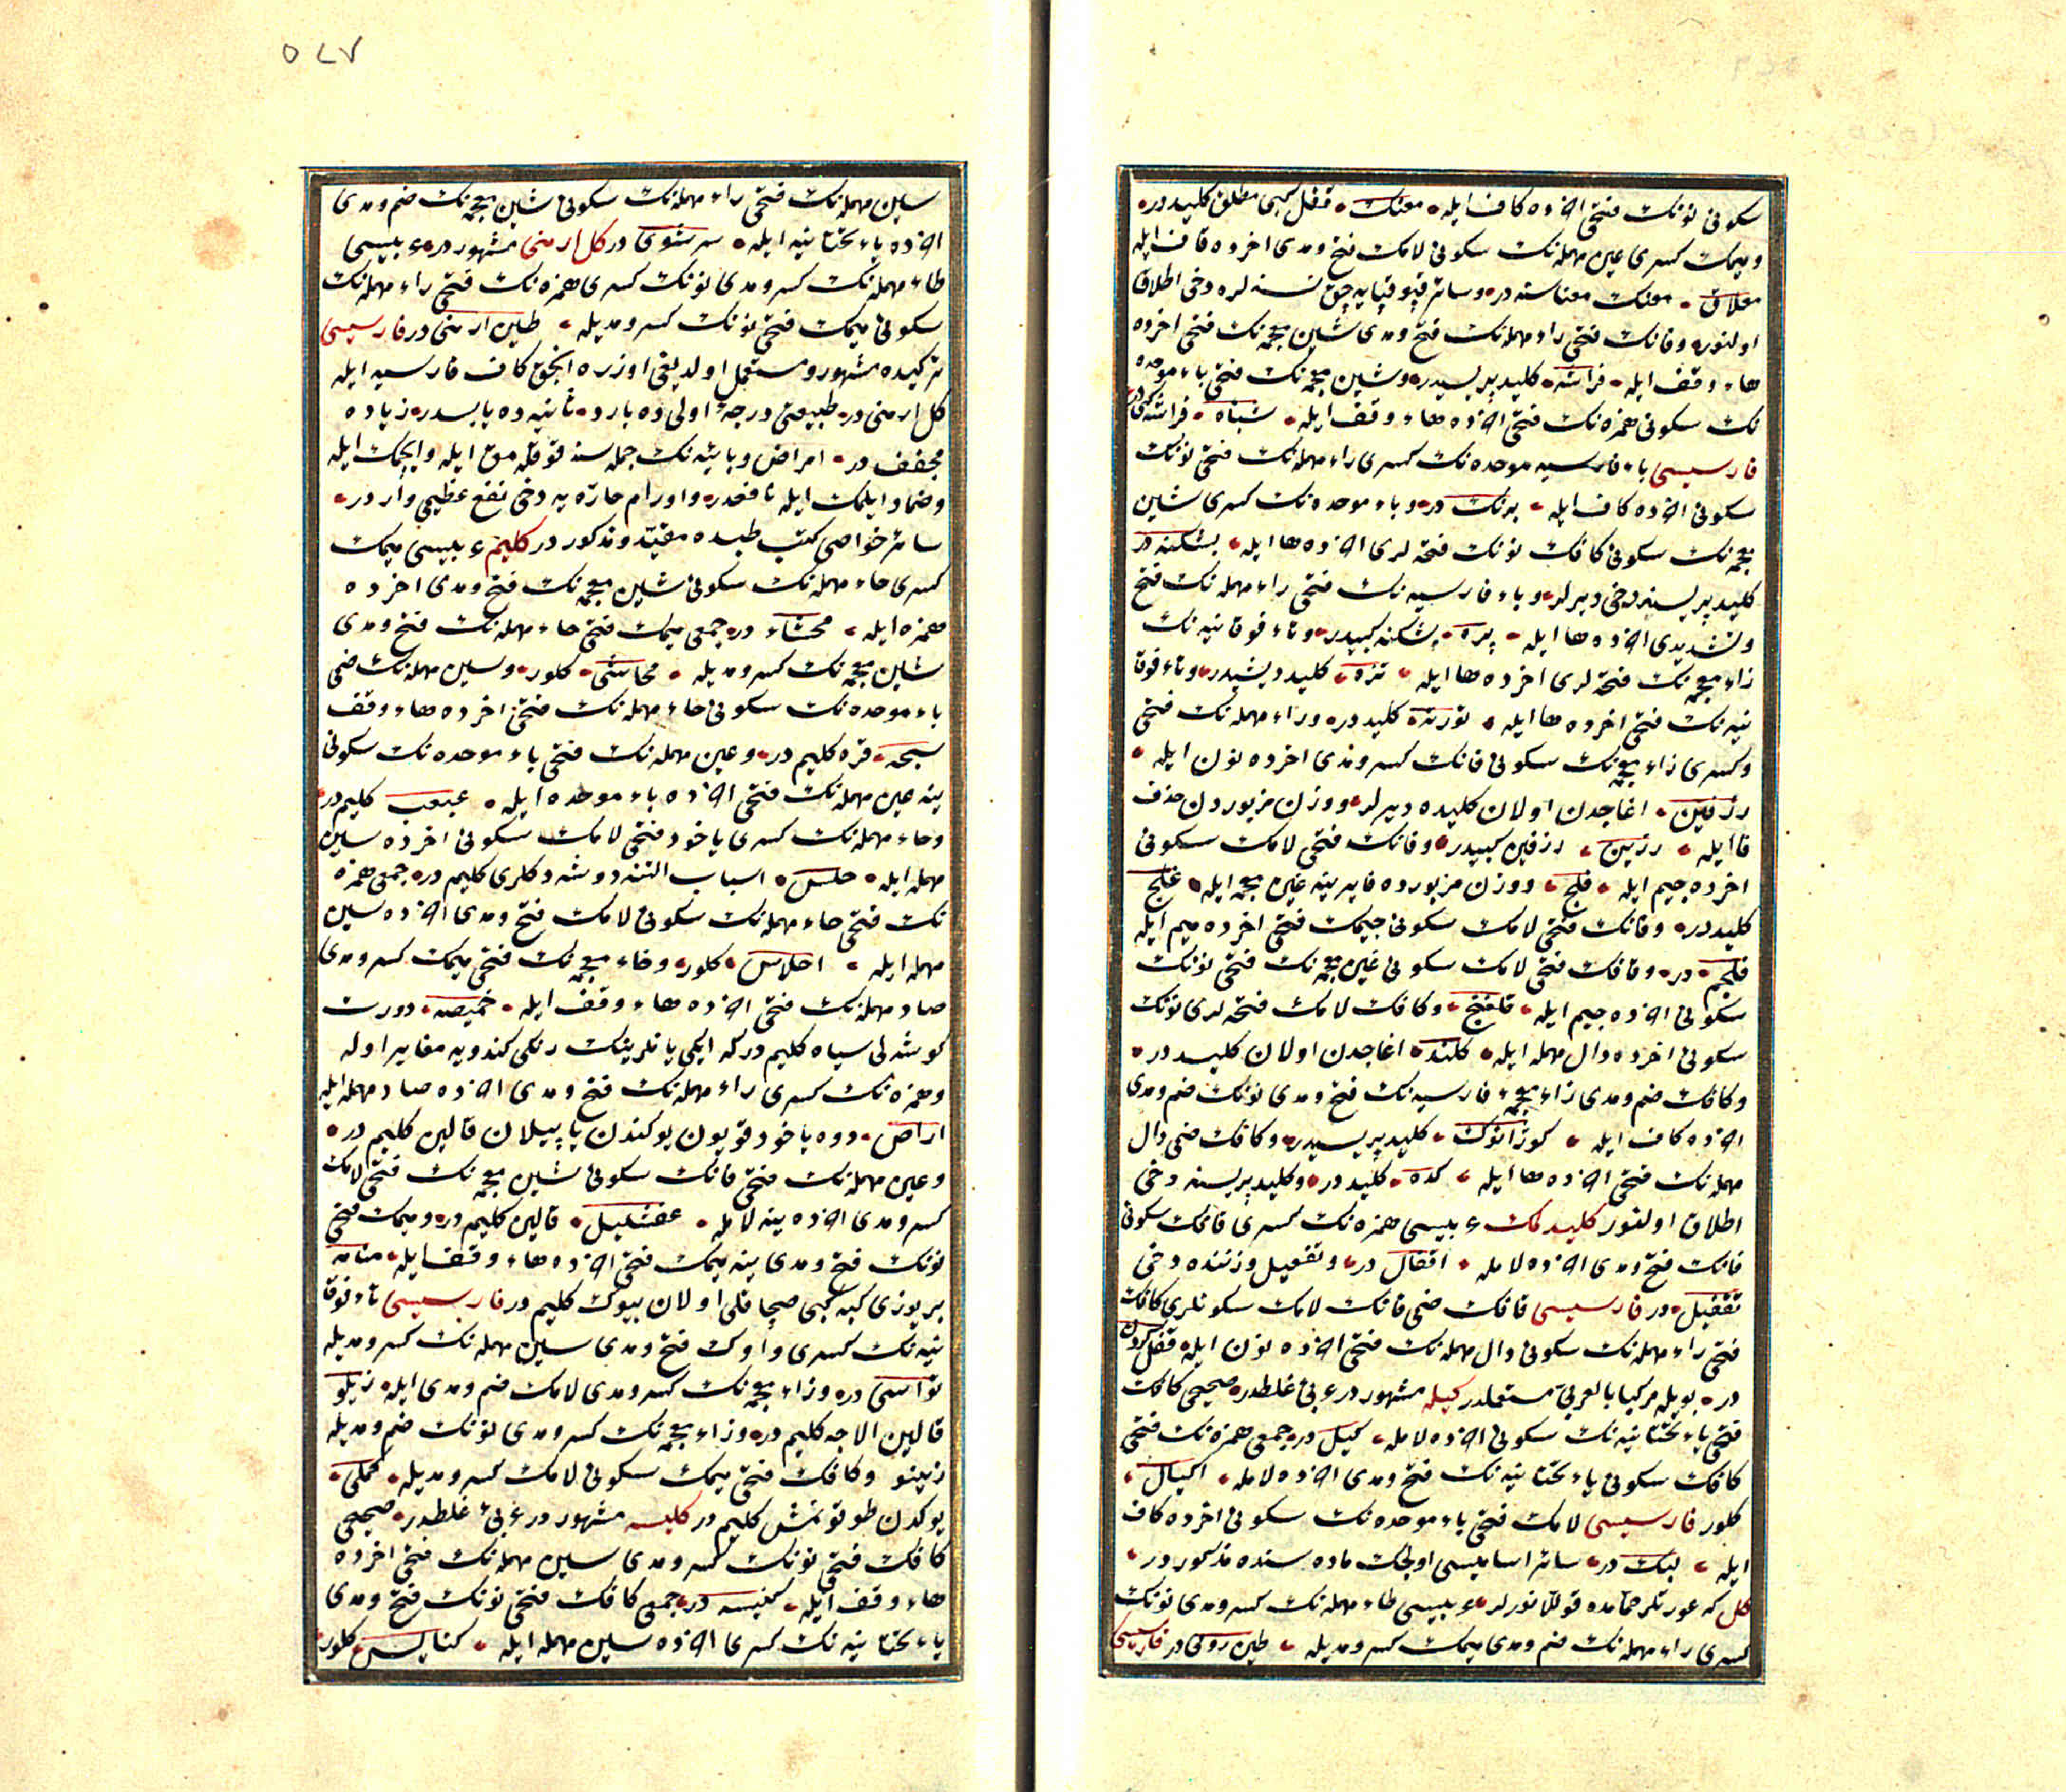 سكونى نونك فتحى اخرده كاف ايله معنك قفل كبى مطلق كليددر
و ميمك كسرى عين مهمله نك سكونى لامك فتح و مدى اخرده قاف ايله
معلاق معنك معناسنه در و سائر قپو قپايه جق نسنه لره دخى اطلاق
اولنور و فانك فتحى راء مهمله نك فتح و مدى شين معجمه نك فتحى اخرده
هاء وقف ايله فراشه كليد پريسيدر و شين معجمه نك فتحى باء موحده
نك سكونى همزه نك فتحى اخرده هاء وقف ايله شبأه فراشه كبى در
فارسيسى باء فارسيه موحده نك كسرى راء مهمله نك فتحى نونك
سكونى اخرده كاف ايله برنك در و باء موحده نك كسرى شين
معجمه نك سكونى كافك نونك فتحه لرى اخرده ها ايله بشكنه در
كليد پريسنه دخى ديرلر و باء فارسيه نك فتحى راء مهمله نك فتح
و تشديدى اخرده ها ايله پره بشكنه كبيدر و تاء فوقانيه نك
زاء معجمه نك فتحه لرى اخرده ها ايله تزه كليد ديشيدر و تاء فوقا
نيه نك فتحى اخرده ها ايله تورنه كليددر و راء مهمله نك فتحى
و كسرى زاء معجمه نك سكونى فانك كسر و مدى اخرده نون ايله
رزفين اغاجدن اولان كليده ديرلر و وزن مزبوردن حذف
فا ايله رزين رزفين كبيدر و فانك فتحى لامك سكونى
اخرده جيم ايله فلج و وزن مزبورده فا يرينه غين معجمه ايله غلج
كليددر و فانك فتحى لامك سكونى جيمك فتحى اخرده ميم ايله
فلجم در و قافك فتحى لامك سكونى غين معجمه نك فتحى نونك
سكونى اخرده جيم ايله قلغنج و كافك لامك فتحه لرى نونك
سكونى اخرده دال مهمله ايله كلند اغاجدن اولان كليددر
و كافك ضم و مدى زاء معجمه فارسيه نك فتح و مدى نونك ضم و مدى
اخرده كاف ايله كوژانوك كليد پريسيدر و كافك ضمى دال
مهمله نك فتحى اخرده ها ايله كده كليددر و كليد پريسنه دخى
اطلاق اولنور كليدمك عربيسى همزه نك كسرى قافك سكونى
فانك فتح و مدى اخرده لامله اقفال در و تفعيل وزننده دخى
تقفيل در فارسيسى قافك ضمى فانك لامك سكونلرى كافك
فتحى راء مهمله نك سكونى دال مهمله نك فتحى اخرده نون ايله قفل كردن
در بويله مركبا بالعربى مستعملدر كيله مشهوردر عربى غلطدر صحيحى كافك
فتحى ياء تحتانيه نك سكونى اخرده لامله كيل در جمعى همزه نك فتحى
كافك سكونى ياء تحتانيه نك فتح و مدى اخرده لامله اكيال
كلور فارسيسى لامك فتحى باء موحده نك سكونى اخرده كاف
ايله لبك در سائر اساميسى اولچك ماده سنده مذكوردر
كل كه عورتلر حمامده قوللانورلر عربيسى طاء مهمله نك كسر و مدى نونك
كسرى راء مهمله نك ضم و مدى ميمك كسر و مديله طين رومى در فارسيسى
٥٤٧
سين مهمله نك فتحى راء مهمله نك سكونى شين معجمه نك ضم و مدى
اخرده ياء تحتانيه ايله سرشوى در كل ارمنى مشهوردر عربيسى
طاء مهمله نك كسر و مدى نونك كسرى همزه نك فتحى راء مهمله نك
سكونى ميمك فتحى نونك كسر و مديله طين ارمنى در فارسيسى
تركيده مشهور و مستعمل اولديغى اوزره انجق كاف فارسيه ايله
كل ارمنى در طبيعتى درجۀ اولى ده بارد ثانيه ده يابسدر زياده
مجفف در امراض وبائيه نك جمله سنه قوقلامق ايله و ايچمك ايله
و ضماد ايلمك ايله نافعدر و اورام حاره يه دخى نفع عظيمى واردر
سائر خواصى كتب طبده مقيد و مذكوردر كليم عربيسى ميمك
كسرى حاء مهمله نك سكونى شين معجمه نك فتح و مدى اخرده
همزه ايله محشاء در جمعى ميمك فتحى حاء مهمله نك فتح و مدى
شين معجمه نك كسر و مديله محاشى كلور و سين مهمله نك ضمى
باء موحده نك سكونى حاء مهمله نك فتحى اخرده هاء وقف
سبحه قره كليم در و عين مهمله نك فتحى باء موحده نك سكونى
ينه عين مهمله نك فتحى اخرده باء موحده ايله عبعب كليم در
و حاء مهمله نك كسرى ياخود فتحى لامك سكونى اخرده سين
مهمله ايله حلس اسباب التنه دوشدكلرى كليم در جمعى همزه
نك فتحى حاء مهمله نك سكونى لامك فتح و مدى اخرده سين
مهمله ايله احلاس كلور و خاء معجمه نك فتحى ميمك كسر و مدى
صاد مهمله نك فتحى اخرده هاء وقف ايله خميصه دورت
كوشه لى سياه كليم در كه ايكى ياننرينك رنكى كندويه مغاير اوله
و همزه نك كسرى راء مهمله نك فتح و مدى اخرده صاد مهمله ايله
اراص دوه ياخود قويون يوكندن ياپيلان قالين كليم در
و عين مهمله نك فتحى فانك سكونى شين معجمه نك فتحى لامك
كسر و مدى اخرده ينه لامله عفشليل قالين كليم در و ميمك فتحى
نونك فتح و مدى ينه ميمك فتحى اخرده هاء وقف ايله منامه
بر يوزى كبه كبى صچاقلى اولان بيوك كليم در فارسيسى تاء فوقا
نيه نك كسرى واوك فتح و مدى سين مهمله نك كسر و مديله
تواسى در و زاء معجمه نك كسر و مدى لامك ضم و مدى ايله زيلو
قالين الاجه كليم در و زاء معجمه نك كسر و مدى نونك ضم و مديله
زينو و كافك فتحى ميمك سكونى لامك كسر و مديله كملى
يوكدن طوقونمش كليم در كليسه مشهوردر عربى غلطدر صحيحى
كافك فتحى نونك كسر و مدى سين مهمله نك فتحى اخرده
هاء وقف ايله كنيسه در جمعى كافك فتحى نونك فتح و مدى
ياء تحتانيه نك كسرى اخرده سين مهمله ايله كنايس كلور